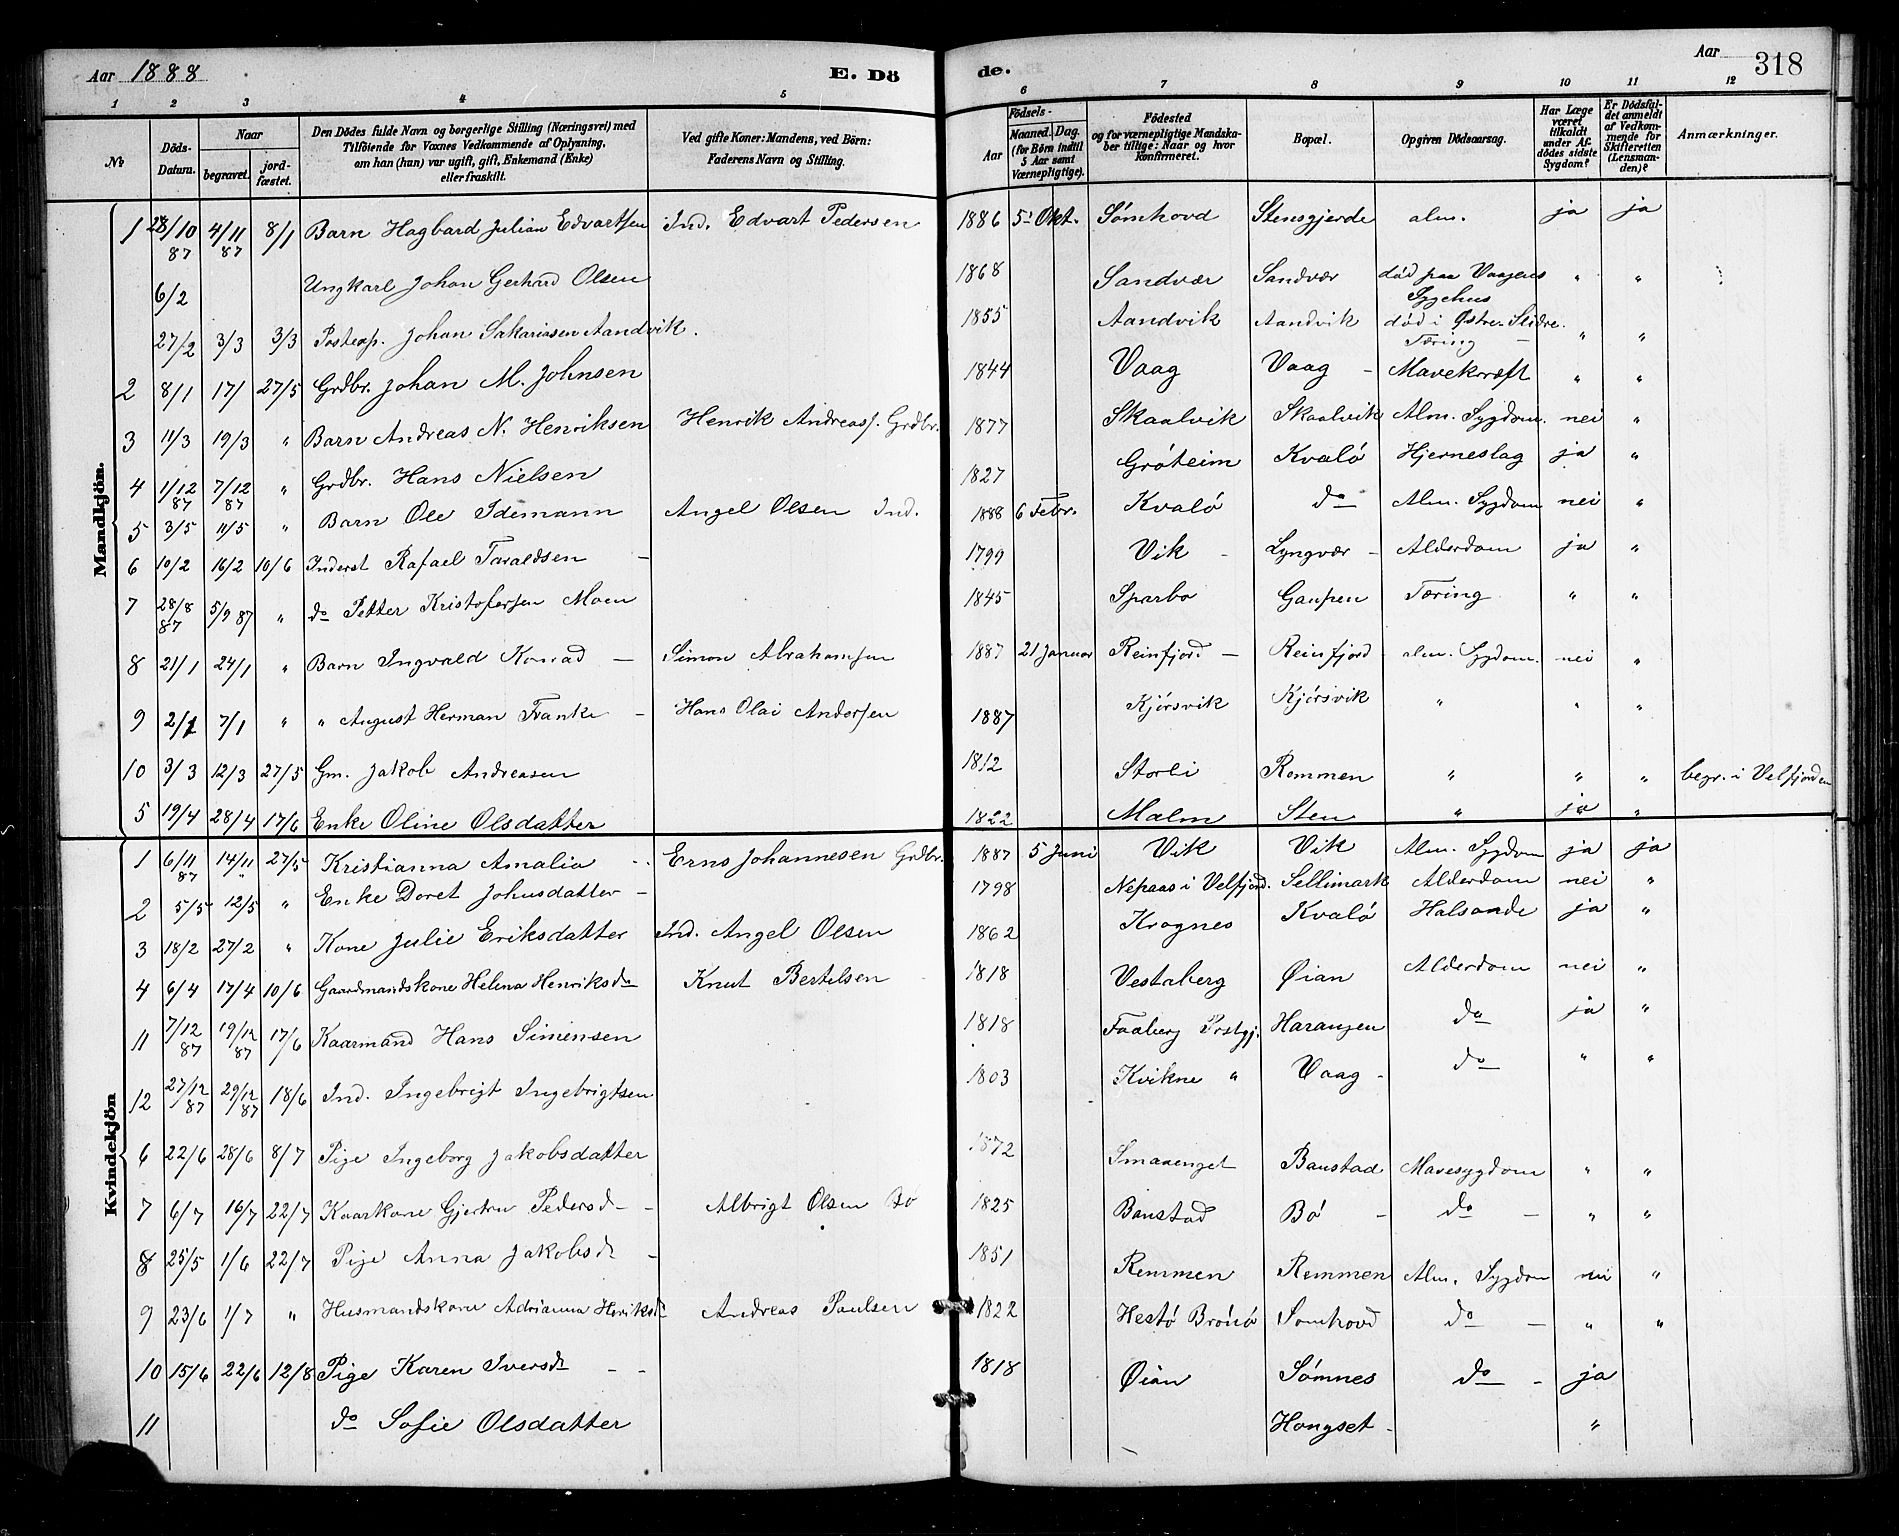 Aar 1888 E. Dö de. Aar 318
1 2 3 4 5 6 7 8 9 10 11 12
No Döds-Datum. Naar begravet. jordfæstet. Den Dödes fulde Navn og borgerlige Stilling (Næringsvei) med Tilföiende for Voxnes Vedkommende af Oplysning, om han (hun) var ugift, gift, Enkemand (Enke) eller fraskilt. Ved gifte Koner: Mandens, ved Börn: Faderens Navn og Stilling. Födsels- Aar Maaned. Dag. (for Börn indtil 5 Aar samt Værnepligtige). Födested og for værnepligtige Mandskaber tillige: Naar og hvor konfirmeret. Bopæl. Opgiven Dödsaarsag. Har Læge været tilkaldt under Afdödes sidste Sygdom? Er Dödsfaldet anmeldt af Vedkommende for Skifteretten (Lensmanden)? Anmærkninger.
Mandkjön.
1 28/10 87 4/11 87 8/1 Barn Hagbard Julian Edvartsen Ind. Edvart Pedersen 1886 5 Okt. Sømhovd Stensgjerde alm. ja ja
6/2 Ungkarl Johan Gerhard Olsen 1868 Sandvær Sandvær død paa Vaagens Sygehus " "
27/2 3/3 3/3 Johan Sakariasen Aandvik. 1855 Aandvik Aandvik død i Østre Slidre. Tæring " "
2 8/1 17/ 27/5 Grdbr. Johan M. Johnsen 1844 Vaag Vaag - Mavekræft " "
3 11/3 19/3 " Barn Andreas N. Henriksen Henrik Andreass. Grdbr. 1877 Skaalvik Skaalvik Alm. Sygdom. nei "
4 1/12 87 7/12 87 " Grdbr. Hans Nielsen 1827 Grøteim Kvalø Hjerneslag ja "
5 3/5 11/5 " Barn Ole Idemann Angel Olsen Ind. 1888 6 Febr. Kvalø do Alm. Sygdom nei "
6 10/2 16/2 10/6 Inderst Rafael Taraldsen - 1799 Vik - Lyngvær - Alderdom ja "
7 28/8 87 5/9 87 " do Petter Kristofersen Moen 1845 Sparbo Gaupen Tæring " "
8 21/1 24/1 " Barn Ingvald Konrad - Simon Abrahamsen 1887 21 Januar Reinfjord - Reinfjord alm. Sygdom. nei "
9 2/1 7/1 " " August Herman Franke - Hans Olai Andersen 1887 Kjørsvik Kjørsvik " " "
10 3/3 12/3 27/5 Gm. Jakob Andreasen 1812 Storli Remmen " " " begr. i Velfjorden
5 19/4 28/4 17/6 Enke Oline Olsdatter 1822 Malm Sten " ja "
Kvindekjön
1 6/11 87 14/11 " 27/5 Kristianna Amalia Erns Johannesen Grdbr. 1887 5 Juni Vik Vik Alm. Sygdom ja ja
2 5/5 12/5 " Enke Doret Johnsdatter - 1798 Nepaas i Velfjord. Sellimark Alderdom nei "
3 18/2 27/2 " Kone Julie Eriksdatter Ind. Angel Olsen 1862 Krognes Kvalø Halsonde ja "
4 6/4 17/4 10/6 Gaardmandskone Helena Henriksdr Knut Bertelsen 1818 Vestaberg Øian Alderdom nei "
11 7/12 87 19/12 87 17/6 Kaarmand Hans Simensen 1818 Faaberg Prstgj. Haransen do ja "
12 27/12 87 29/12 87 18/6 Ind. Ingebrigt Ingebrigtsen 1803 Kvikne " Vaag - do " "
6 22/6 28/6 8/7 Pige Ingeborg Jakobsdatter 1872 Smaaenget Baustad Mavesygdom " "
7 6/7 16/7 22/7 Kaarkone Gjertru Pedersd - - Albrigt Olsen Bø 1825 Baustad Bø - do - " "
8 25/5 1/6 22/7 Pige Anna Jakobsdr - 1851 Remmen Remmen Alm. Sygdom nei "
9 23/6 1/7 " Husmandskone Adrianna Henriksdr Andreas Paulsen 1822 Hestø Brønø Somhovd do - " "
10 15/6 22/6 12/8 Pige Karen Iversdr - - 1818 Øian Sømnes do - ja
11 do Sofie Olsdatter Hongset - "